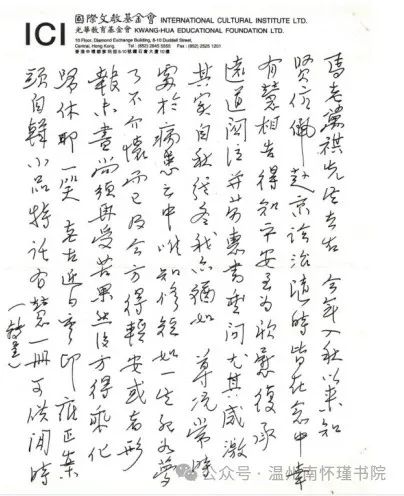 ICI
國際文教基金會 INTERNATIONAL CULTURAL INSTITUTE LTD.
光華教育基金會 KWANG-HUA EDUCATIONAL FOUNDATION LTD.
10 Floor, Diamond Exchange Building, 8-10 Duddell Street,
Central, Hong Kong Tel : (852) 2845 5555 Fax : (852) 2525 1201
香港中環都爹利街8-10號鑽石會大廈10樓
馬老萬祺先生左右 今年入秋以來知
賢伉儷赴京診治隨時皆在念中幸
有慧相告得知平安至為欣慰復承
遠道關注并蒙惠書垂問尤其感激
其實自秋徂冬我亦猶如 尊況常時
處於病患之中唯知修短如一生死如夢
了不介懷而已及今方得輕安或者形
報未盡尚須再受苦果然後方得乘化
歸休耶一笑 老古近日重印雍正案
頭自輯小品特託有慧 一冊可供閒時
(轉呈)
公众号 · 温州南怀瑾书院